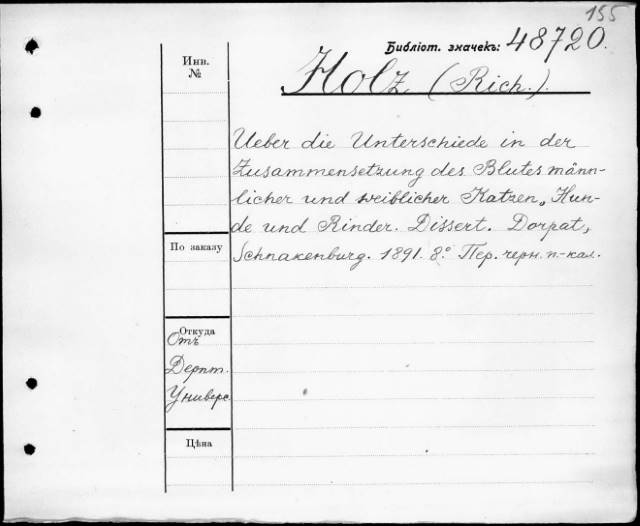 155
Библіот. значекъ: 48720.
Инв.
№
Holz (Rich.).
Ueber die Unterschiede in der
Zusammensetzung des Blutes männ-
licher und weiblicher Katzen, Hun-
de und Rinder. Dissert. Dorpat,
Schnakenburg. 1891. 8.° Пер. черн. п.-кал.
По заказу
Откуда
Отъ
Дерпт.
Универс.
Цѣна